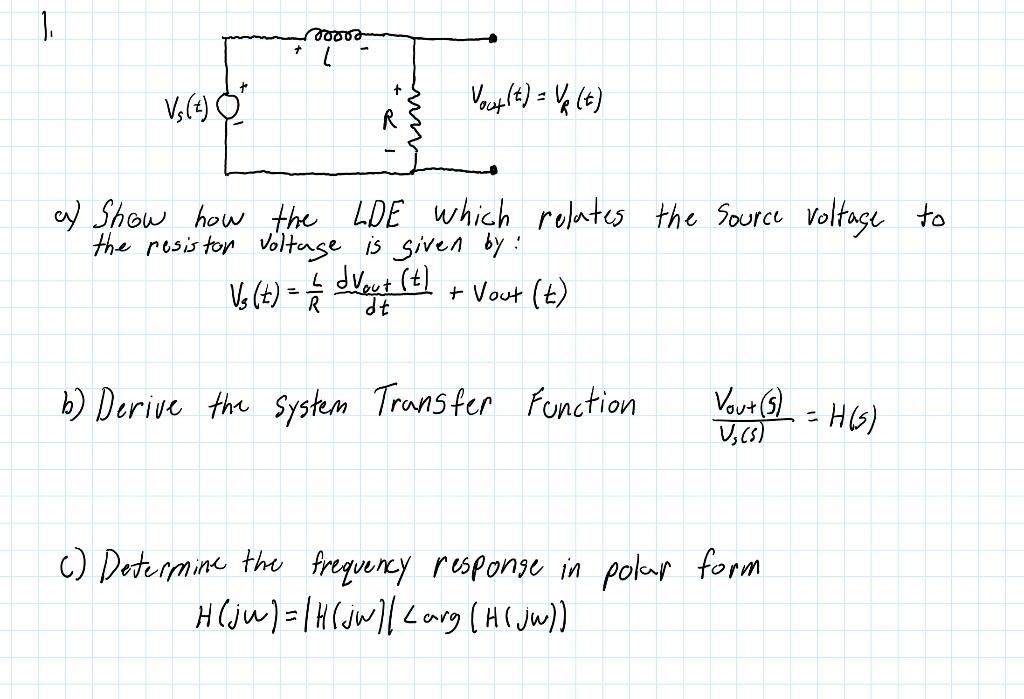 1.
+ L -
Vs(t) + -
+ R -
Vout(t) = VR(t)
a) Show how the LDE which relates the source voltage to
the resistor voltage is given by:
Vs(t) = L/R dVout(t)/dt + Vout(t)
b) Derive the system Transfer Function Vout(s)/Vs(s) = H(s)
c) Determine the frequency response in polar form
H(jw) = |H(jw)| ∠ arg(H(jw))